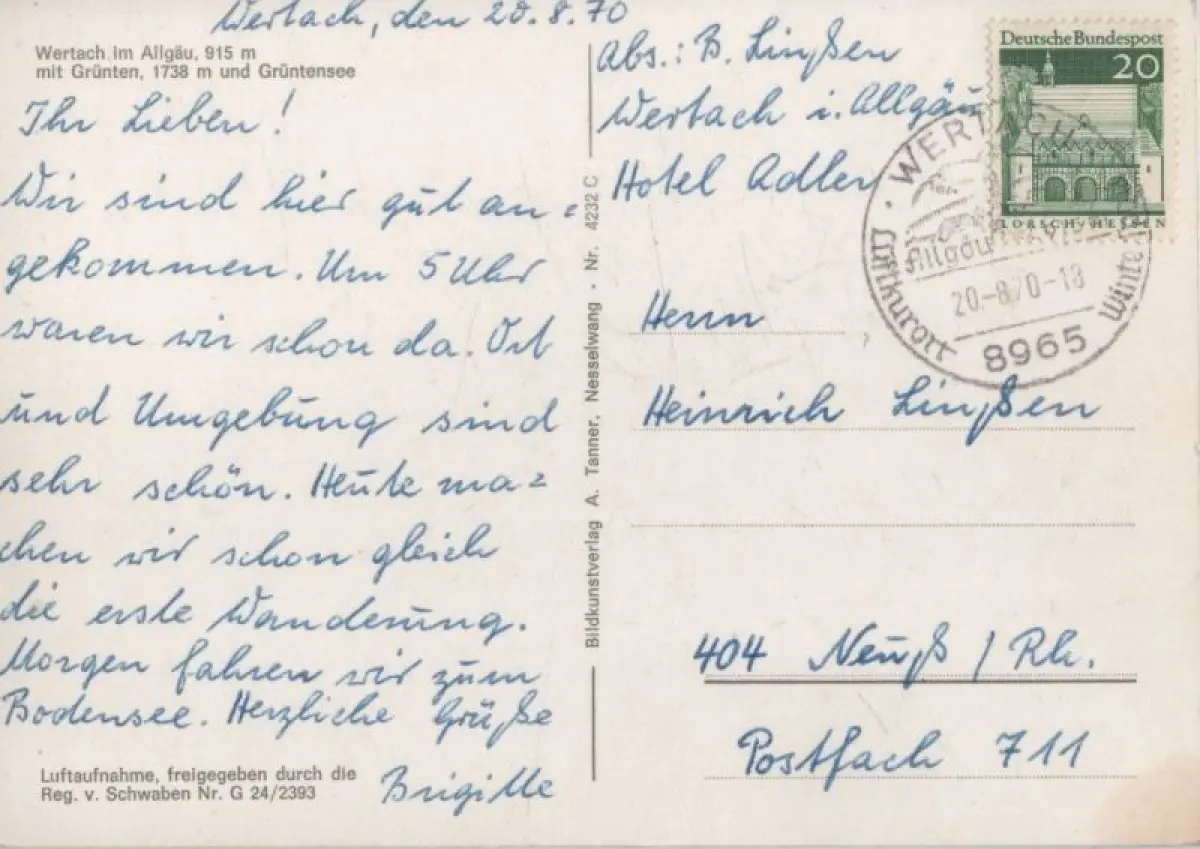 Wertach, den 20.8.70
Wertach im Allgäu, 915 m
mit Grünten, 1738 m und Grüntensee
Ihr Lieben!
Wir sind hier gut an=
gekommen. Um 5 Uhr
waren wir schon da. Ort
und Umgebung sind
sehr schön. Heute ma=
chen wir schon gleich
die erste Wanderung.
Morgen fahren wir zum
Bodensee. Herzliche Grüße
Brigitte
Luftaufnahme, freigegeben durch die
Reg. v. Schwaben Nr. G 24/2393
Bildkunstverlag A. Tanner, Nesselwang · Nr. 4232 C
Abs.: B. Linßen
Wertach i. Allgäu
Hotel Adler
Deutsche Bundespost
20
LORSCH/HESSEN
WERTACH
Allgäu
Luftkurort
20-8.70-18
8965
Herrn
Heinrich Linßen
404 Neuß / Rh.
Postfach 711